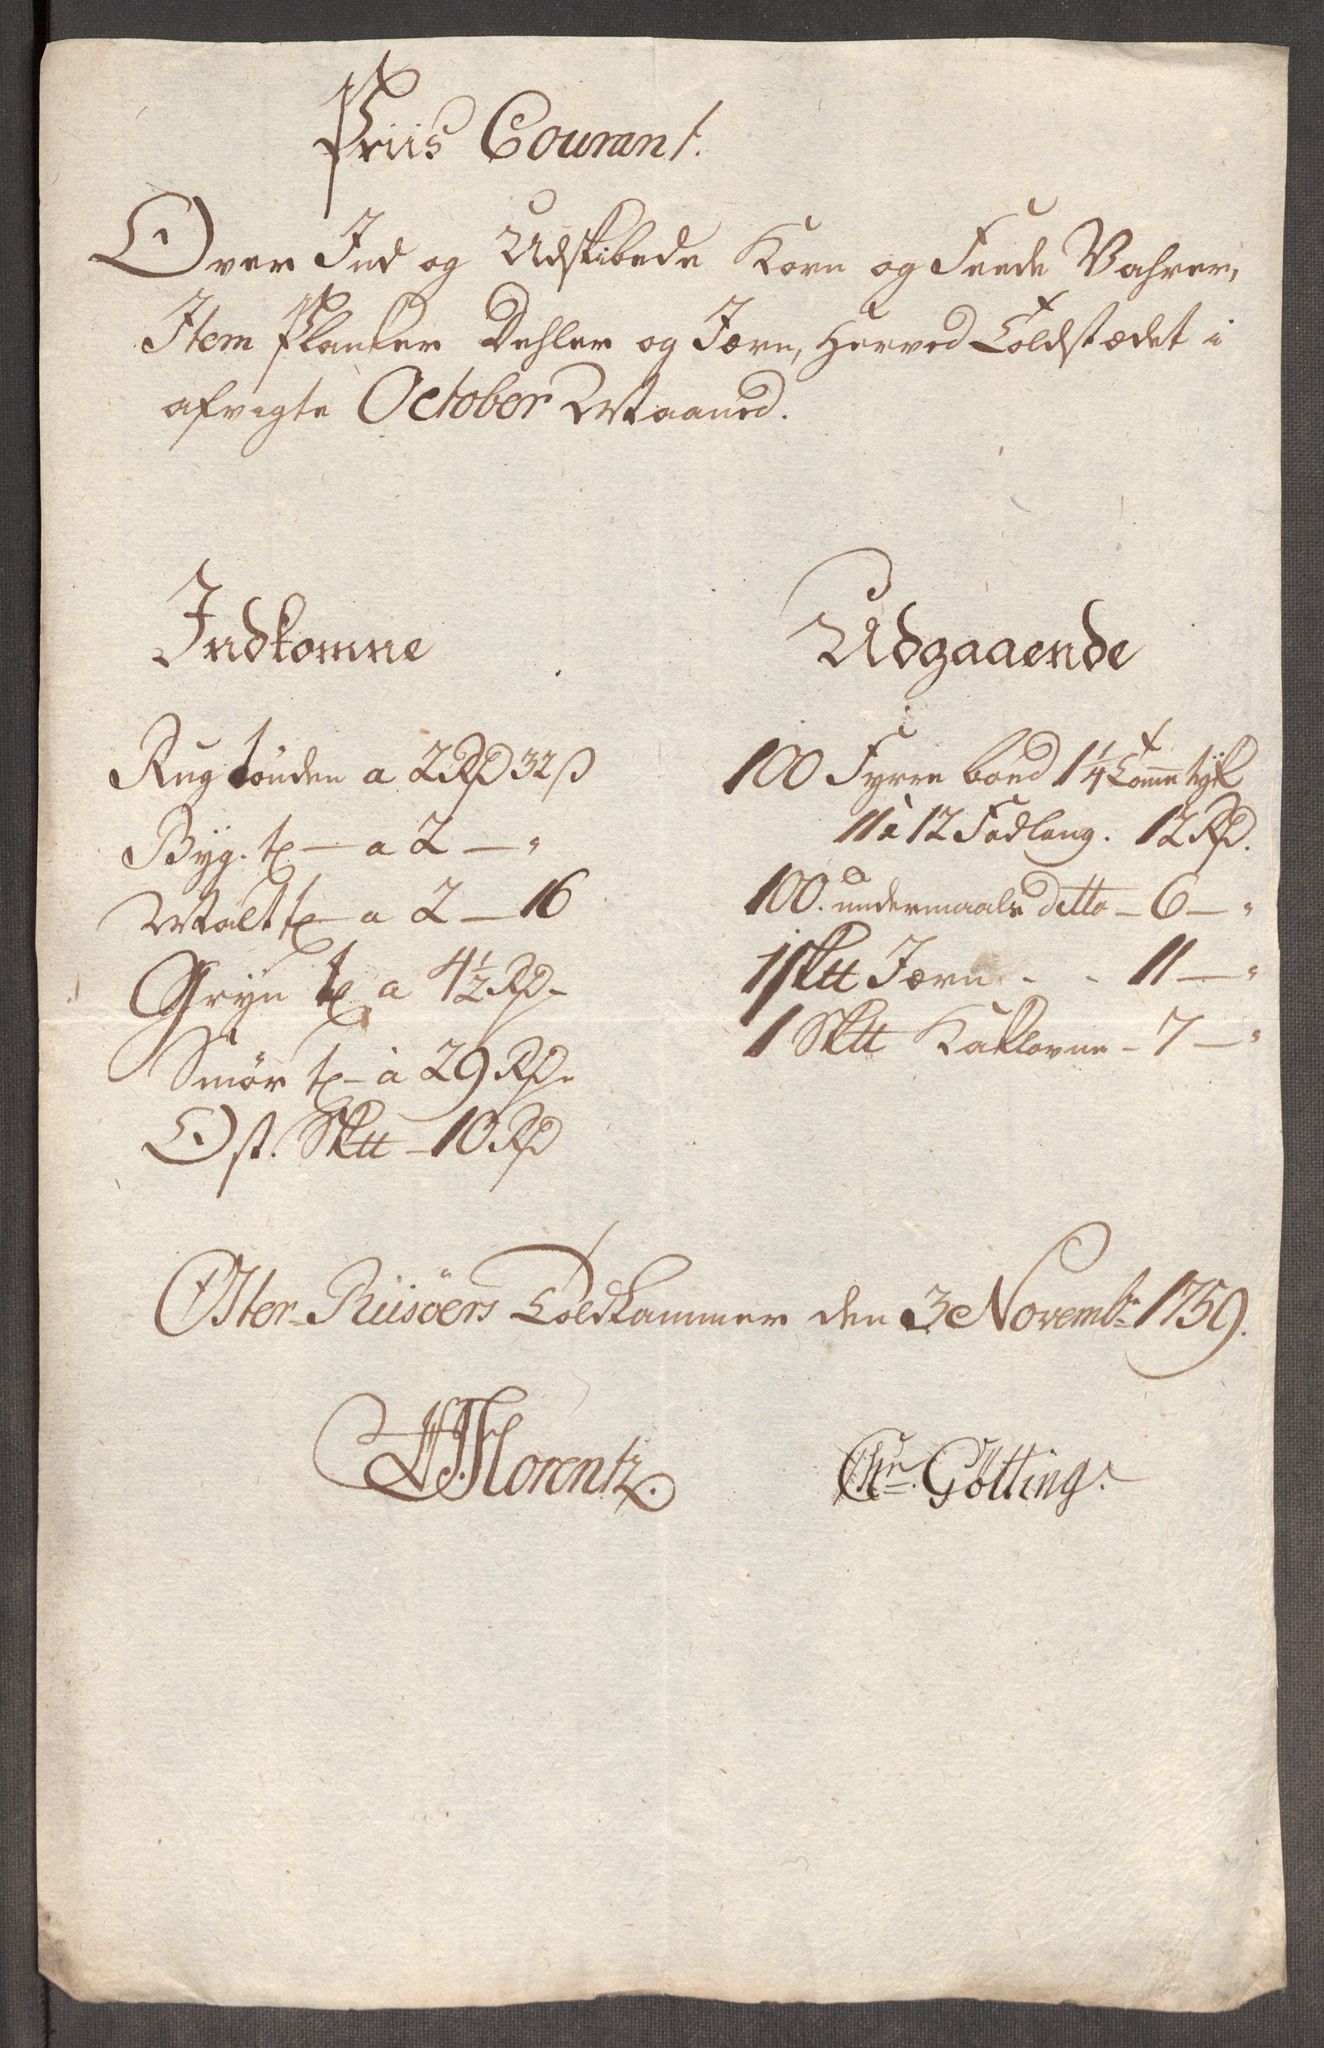 Priis Courant.
Over Ind og Udskibede Korn og Feede Vahrer,
Item Planker Dehler og Jærn, herved Toldstædet i
afvigte October Maaned.
Indkomne
Rug tønden a 2 Rd 32 s
Byg. t. — a 2 — "
Malt t — a 2 — 16
Gryn t. a 4 1/2 Rd.
Smör t — à 29 Rd.
Ost. Sktt — 10 Rd
Udgaaende
100 Fyrre bord 1 1/4 Tomme tyk
11 à 12 Fod lang. 12 Rd.
100. undermaals ditto — 6 — "
1 Sktt Jærn - - 11 — "
1 Sktt Kaklovne — 7 — "
Öster-Riisöers Toldkammer den 3 Novembr: 1759.
Florentz.
Chr. Götting.